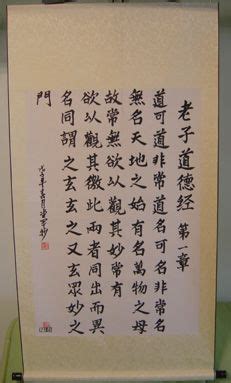 老子道德经 第一章
道可道非常道名可名非常名
無名天地之始有名萬物之母
故常無欲以觀其妙常有
欲以觀其徼此兩者同出而異
名同謂之玄玄之又玄眾妙之
門